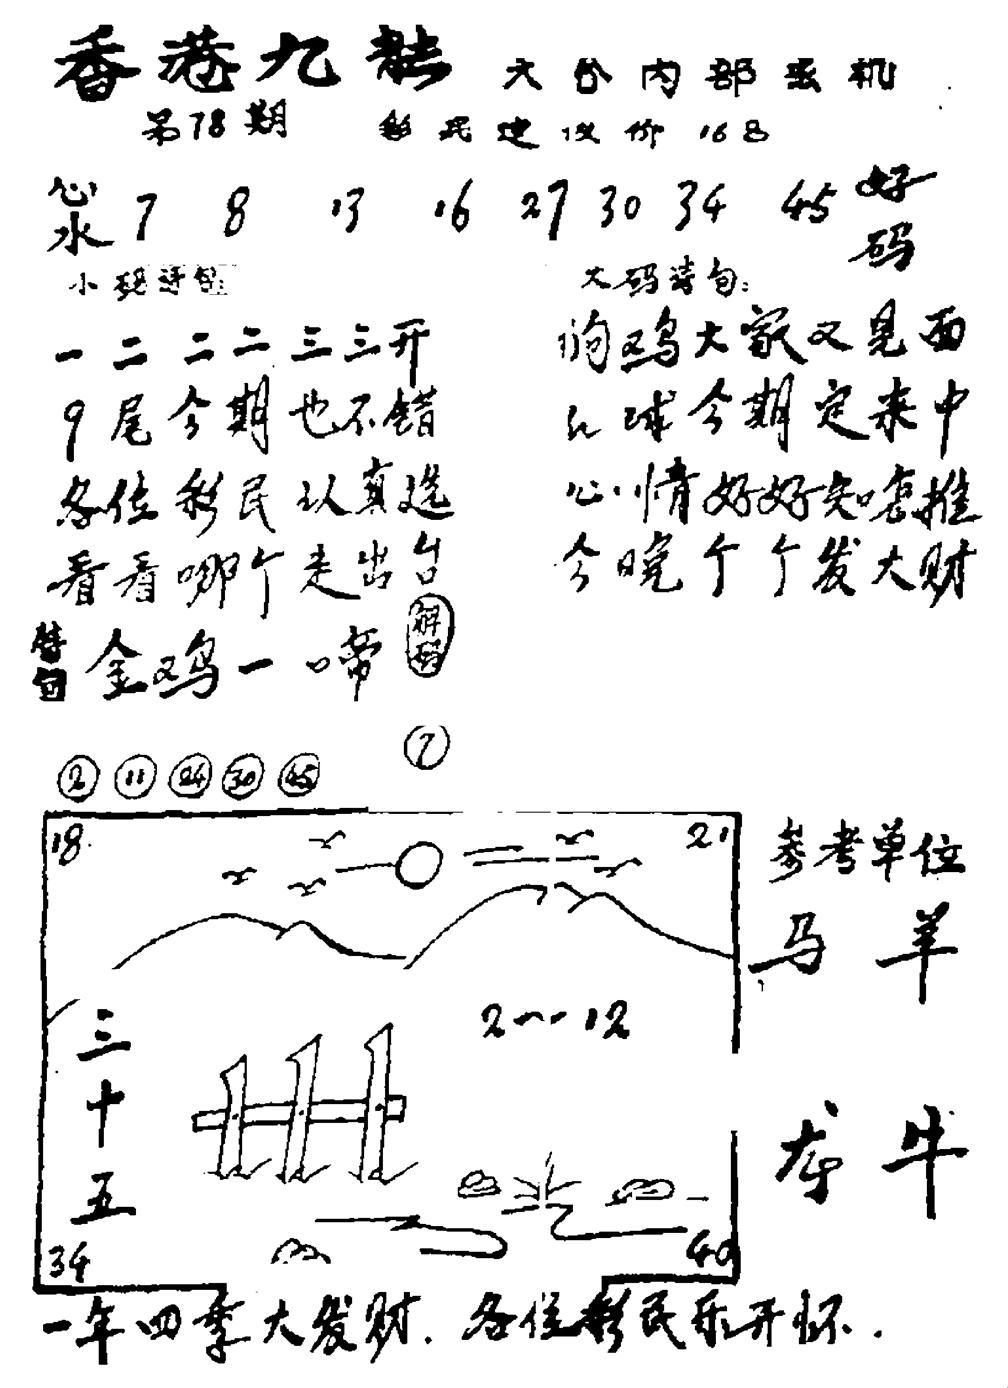 香港九龍 六合内部玄机
第78期 彩民建议价 168
心水 7 8 13 16 27 30 34 45 好码
小码诗句: 大码诗句:
一二二二三三开
9尾今期也不错
各位彩民认真选
看看哪个走出台
鸡大家又见面
红球今期定来中
心情好好知咋推
今晓个个发大财
特句 金鸡一啼 解码
7
2 11 24 30 45
18 21
2--12
三十五
34 40
参考单位
马 羊
龙 牛
一年四季大发财. 各位彩民乐开怀.